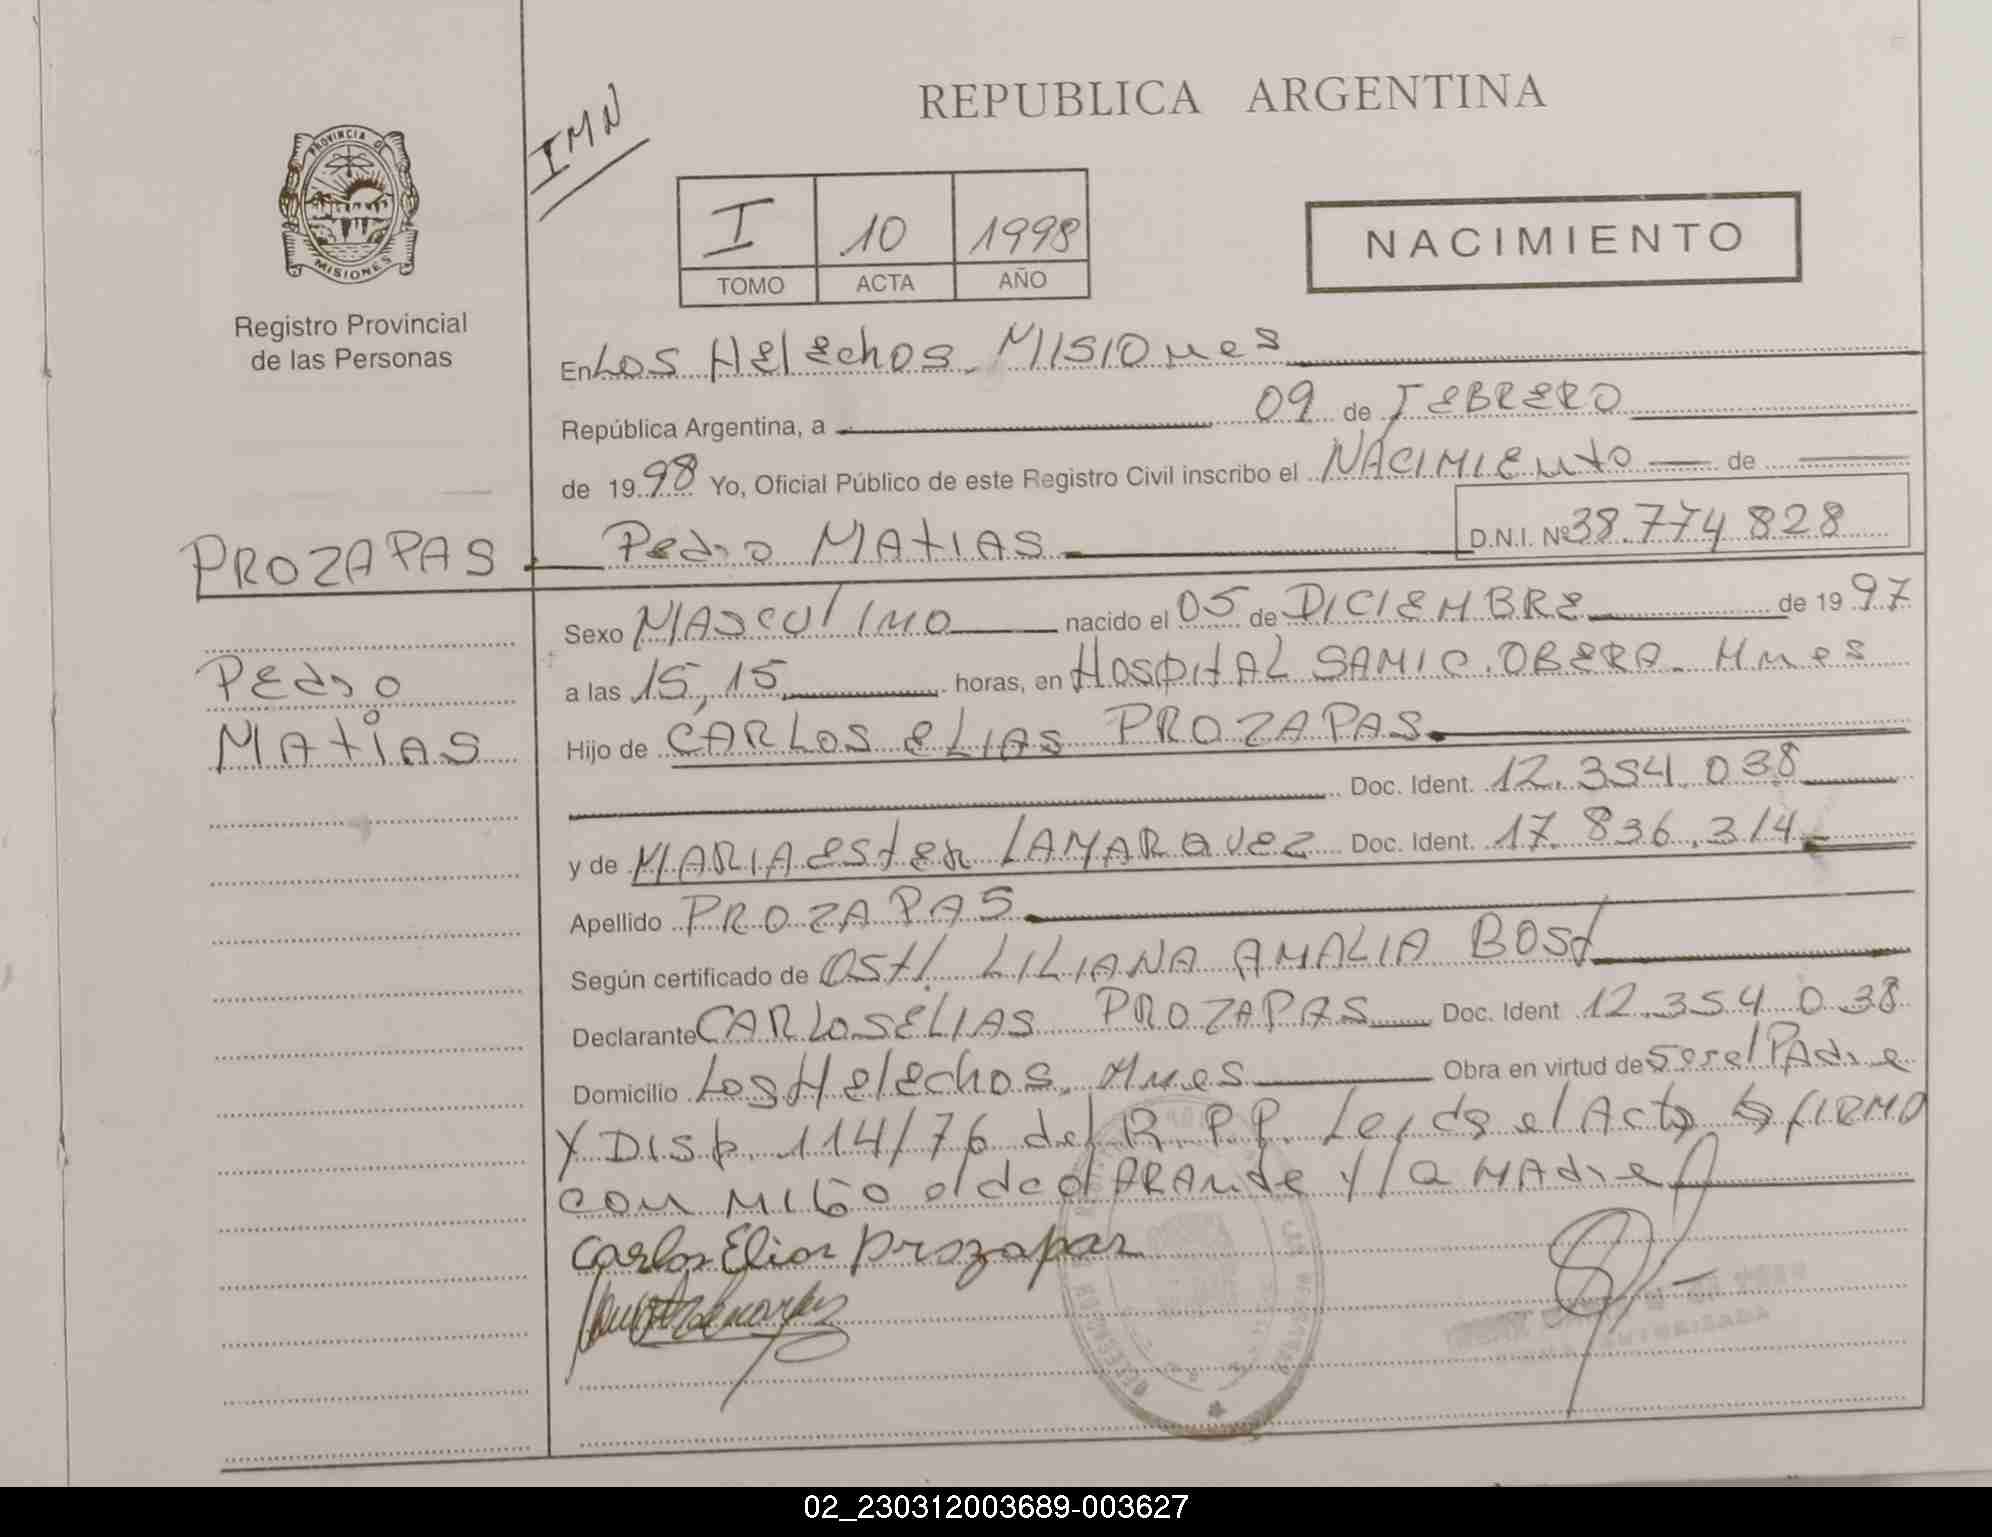 REPUBLICA ARGENTINA
IMN
PROVINCIA DE
MISIONES
Registro Provincial
de las Personas
I 10 1998
TOMO ACTA AÑO
NACIMIENTO
En Los Helechos. Misiones
República Argentina, a 09 de FEBRERO
de 1998 Yo, Oficial Público de este Registro Civil inscribo el NACIMIENTO de
PROZAPAS Pedro MATIAS D.N.I. Nº 38.774.828
Sexo MASCULINO nacido el 05 de DICIEMBRE de 1997
Pedro
a las 15,15 horas, en HOSPITAL SAMIC. OBERA. Mnes
Matias
Hijo de CARLOS eLIAS PROZAPAS
Doc. Ident. 12.354.038
y de MARIA ESTER LAMARQUEZ Doc. Ident. 17.836.314
Apellido PROZAPAS
Según certificado de Ost/. LILIANA AMALIA BOST
Declarante CARLOS ELIAS PROZAPAS Doc. Ident 12.354.038
Domicilio Los Helechos, Mnes Obra en virtud de Ser el PAdre
Y DISP. 114/76 del R.P.P. Leida el Acta la FIRMO
CON MIGO el declARAnte Y LA MAdre
Carlos Elias Prozapas
02_230312003689-003627